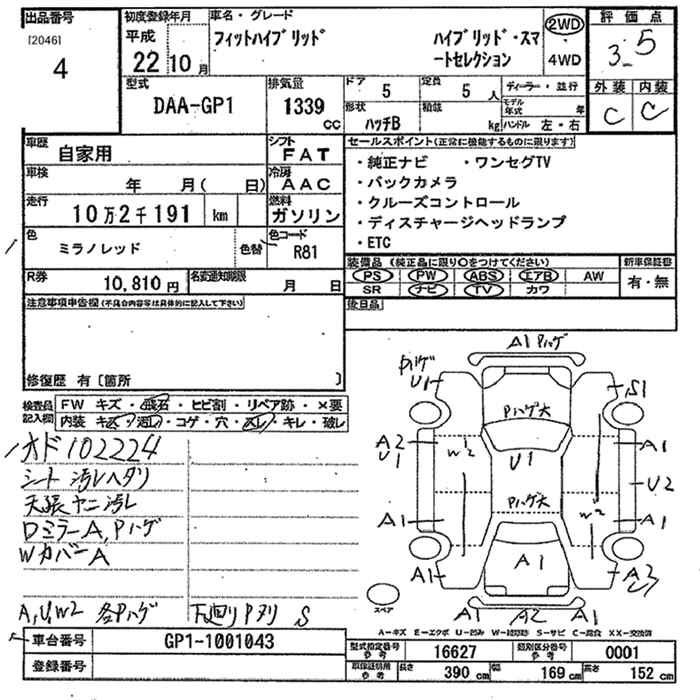 出品番号
[2046]
4
初度登録年月
平成
22年10月
車名・グレード
フィットハイブリッド
ハイブリッド・スマ
ートセレクション
2WD
・
4WD
評価点
3-5
型式
DAA-GP1
排気量
1339
cc
ドア
5
定員
5人
ディーラー・並行
形状
ハッチB
積載
kg
モデル年式
年
ハンドル 左・右
外装 内装
C C
車歴
自家用
シフト
FAT
車検
年 月( 日)
冷房
AAC
走行
10万2千191 km
燃料
ガソリン
色
ミラノレッド
色替
色コード
R81
R券
10,810円
名変通知期限
月 日
セールスポイント(正常に機能するものに限ります)
・純正ナビ ・ワンセグTV
・バックカメラ
・クルーズコントロール
・ディスチャージヘッドランプ
・ETC
装備品(純正品に限り○をつけてください)
新車保証書
PS PW ABS エアB AW
SR ナビ TV カワ
有・無
後日品
注意事項申告欄(不具合内容等は具体的に記入して下さい)
修復歴 有〔箇所 〕
検査員
記入欄
FW キズ・飛石・ヒビ割・リペア跡・×要
内装 キズ・汚れ・コゲ・穴・スレ・キレ・破レ
オド102224
シート汚レヘタリ
天張ヤニ汚レ
DミラーA,Pハゲ
WカバーA
A,U,W2 各Pハゲ
下廻りPヌリ S
A1 Pハゲ
Pハゲ
U1
S1
Pハゲ大
A2
U1
W2
U1
A1
U2
Pハゲ大
A1
W2
A1
A1
A1
A3
スペア
A1
A2
A1
A-キズ E-エクボ U-凹み W-補修跡 S-サビ C-腐食 XX-交換済
車台番号
GP1-1001043
登録番号
型式指定番号
参考
16627
類別区分番号
参考
0001
長さ 390 cm 幅 169 cm 高さ 152 cm